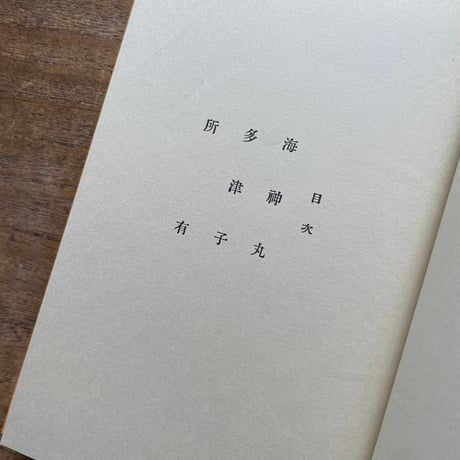 目次
海神丸
多津子
所有